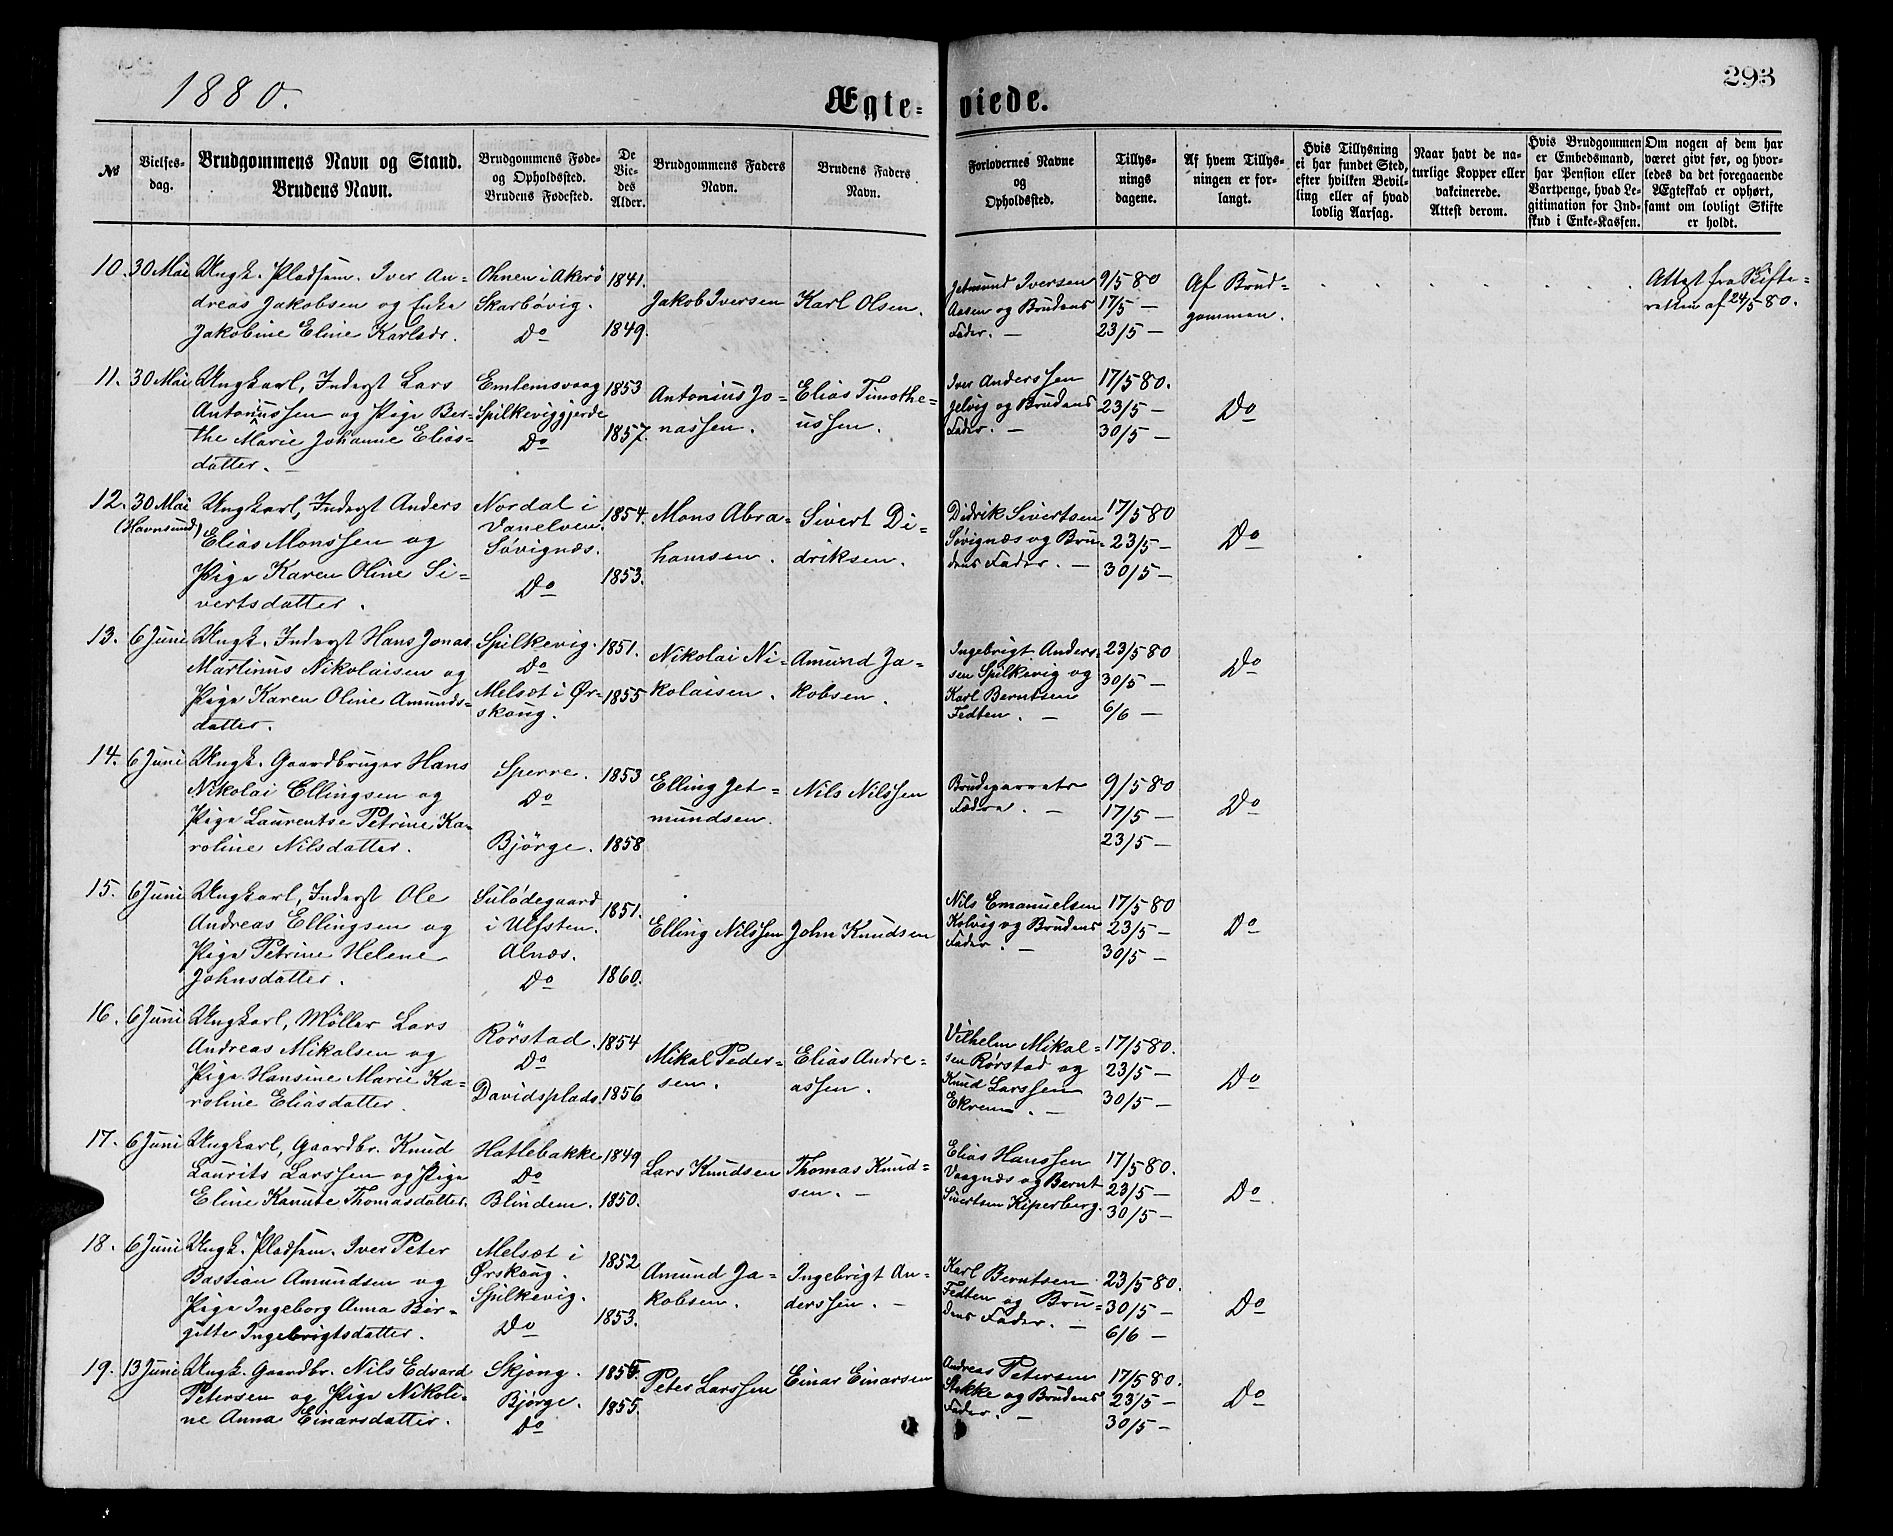 1880.
Ægte-
viede.
293
No
Vielses-
dag.
Brudgommens Navn og Stand.
Brudens Navn.
Brudgommens Føde-
og Opholdssted.
Brudens Fødested.
De
Vie-
des
Alder.
Brudgommens Faders
Navn.
Brudens Faders
Navn.
Forlovernes Navne
og
Opholdssted.
Tillys-
nings
dagene.
Af hvem Tillys-
ningen er for-
langt.
Hvis Tillysning
ei har fundet Sted,
efter hvilken Bevil-
ling eller af hvad
lovlig Aarsag.
Naar havt de na-
turlige Kopper eller
vakcinerede.
Attest derom.
Hvis Brudgommen
er Embedsmand,
har Pension eller
Vartpenge, hvad Le-
gitimation for Ind-
skud i Enke-Kassen.
Om nogen af dem har
været givt før, og hvor-
ledes da det foregaaende
Ægteskab er ophørt,
samt om lovligt Skifte
er holdt.
10. 30 Mai
Ungk. Pladsm. Iver An-
dreas Jakobsen og Enke
Jakobine Eline Karlsdr.
Ohnen i Akerø
Skarbøvig.
Do
1841.
1849.
Jakob Iversen
Karl Olsen.
Jetmund Iversen
Aasen og Brudens
Fader. —
9/5 80
17/5 —
23/5 —
Af Brud-
gommen.
Attest fra Skifte-
retten af 24/5 80.
11. 30 Mai
Ungkarl, Inderst Lars
Antoniussen og Pige Ber-
the Marie Johanne Elias-
datter. —
Emlemsvaag
Spilkeviggjerde
Do
1853
1857.
Antonius Jo-
nassen.
Elias Timothe-
ussen.
Iver Anderssen
Jelvig og Brudens
Fader. —
17/5 80.
23/5 —
30/5 —
Do
12. 30 Mai
(Havnsund)
Ungkarl, Inderst Anders
Elias Monssen og
Pige Karen Oline Si-
vertsdatter.
Nordal i
Vanelven.
Søvignæs.
Do
1854.
1853.
Mons Abra-
hamsen.
Sivert Di-
driksen.
Didrik Sivertsen
Søvignæs og Bru-
dens Fader. —
17/5 80
23/5 —
30/5 —
Do
13. 6 Juni
Ungk. Inderst Hans Jonas
Martinus Nikolaisen og
Pige Karen Oline Amunds-
datter.
Spilkevig.
Do
Melsæt i Ør-
skoug.
1851.
1855
Nikolai Ni-
kolaisen.
Amund Ja-
kobsen.
Ingebrigt Anders-
sen Spilkevig og
Karl Berntsen
Fedten. —
23/5 80
30/5 —
6/6 —
Do
14. 6 Juni
Ungk. Gaardbruger Hans
Nikolai Ellingsen og
Pige Laurentse Petrine Ka-
roline Nilsdatter.
Sperre.
Do
Bjørge.
1853
1858
Elling Jet-
mundsen.
Nils Nilssen
Brudeparrets
Fædre. —
9/5 80
17/5 —
23/5 —
Do
15. 6 Juni
Ungkarl, Inderst Ole
Andreas Ellingsen og
Pige Petrine Helene
Johnsdatter.
Sulødegaard
i Ulfsten.
Alnæs.
Do
1851.
1860.
Elling Nilssen
John Knudsen
Nils Emanuelsen
Kolvig og Brudens
Fader. —
17/5 80
23/5 —
30/5 —
Do
16. 6 Juni
Ungkarl, Møller Lars
Andreas Mikalsen og
Pige Hansine Marie Ka-
roline Eliasdatter.
Rørstad.
Do
Davidsplads.
1854
1856
Mikal Peder-
sen.
Elias Andre-
assen.
Vilhelm Mikal-
sen Rørstad og
Knud Larssen
Ekrem. —
17/5 80.
23/5 —
30/5 —
Do
17. 6 Juni
Ungkarl, Gaardbr. Knud
Laurits Larssen og Pige
Eline Kanute Thomasdatter.
Hatlebakke
Do
Blindem.
1849
1850.
Lars Knudsen
Thomas Knud-
sen. —
Elias Hanssen
Vaagnæs og Bernt
Sivertsen Kiperberg.
17/5 80.
23/5 —
30/5 —
Do
18. 6 Juni
Ungk. Pladsm. Iver Peter
Bastian Amundsen og
Pige Ingeborg Anna Bir-
gitte Ingebrigtsdatter.
Melsæt i
Ørskoug.
Spilkevig.
Do
1852
1853.
Amund Ja-
kobsen.
Ingebrigt An-
derssen. —
Karl Berntsen
Fedten og Bru-
dens Fader. —
23/5 80.
30/5 —
6/6 —
Do
19. 13 Juni
Ungk. Gaardbr. Nils Edvard
Petersen og Pige Nikoli-
ne Anna Einarsdatter.
Skjong.
Bjørge.
Do
1855.
Peter Larssen
Einar Einarsen
Andreas Petersen
Stokke og Brudens
Fader. —
17/5 80.
23/5 —
30/5 —
Do